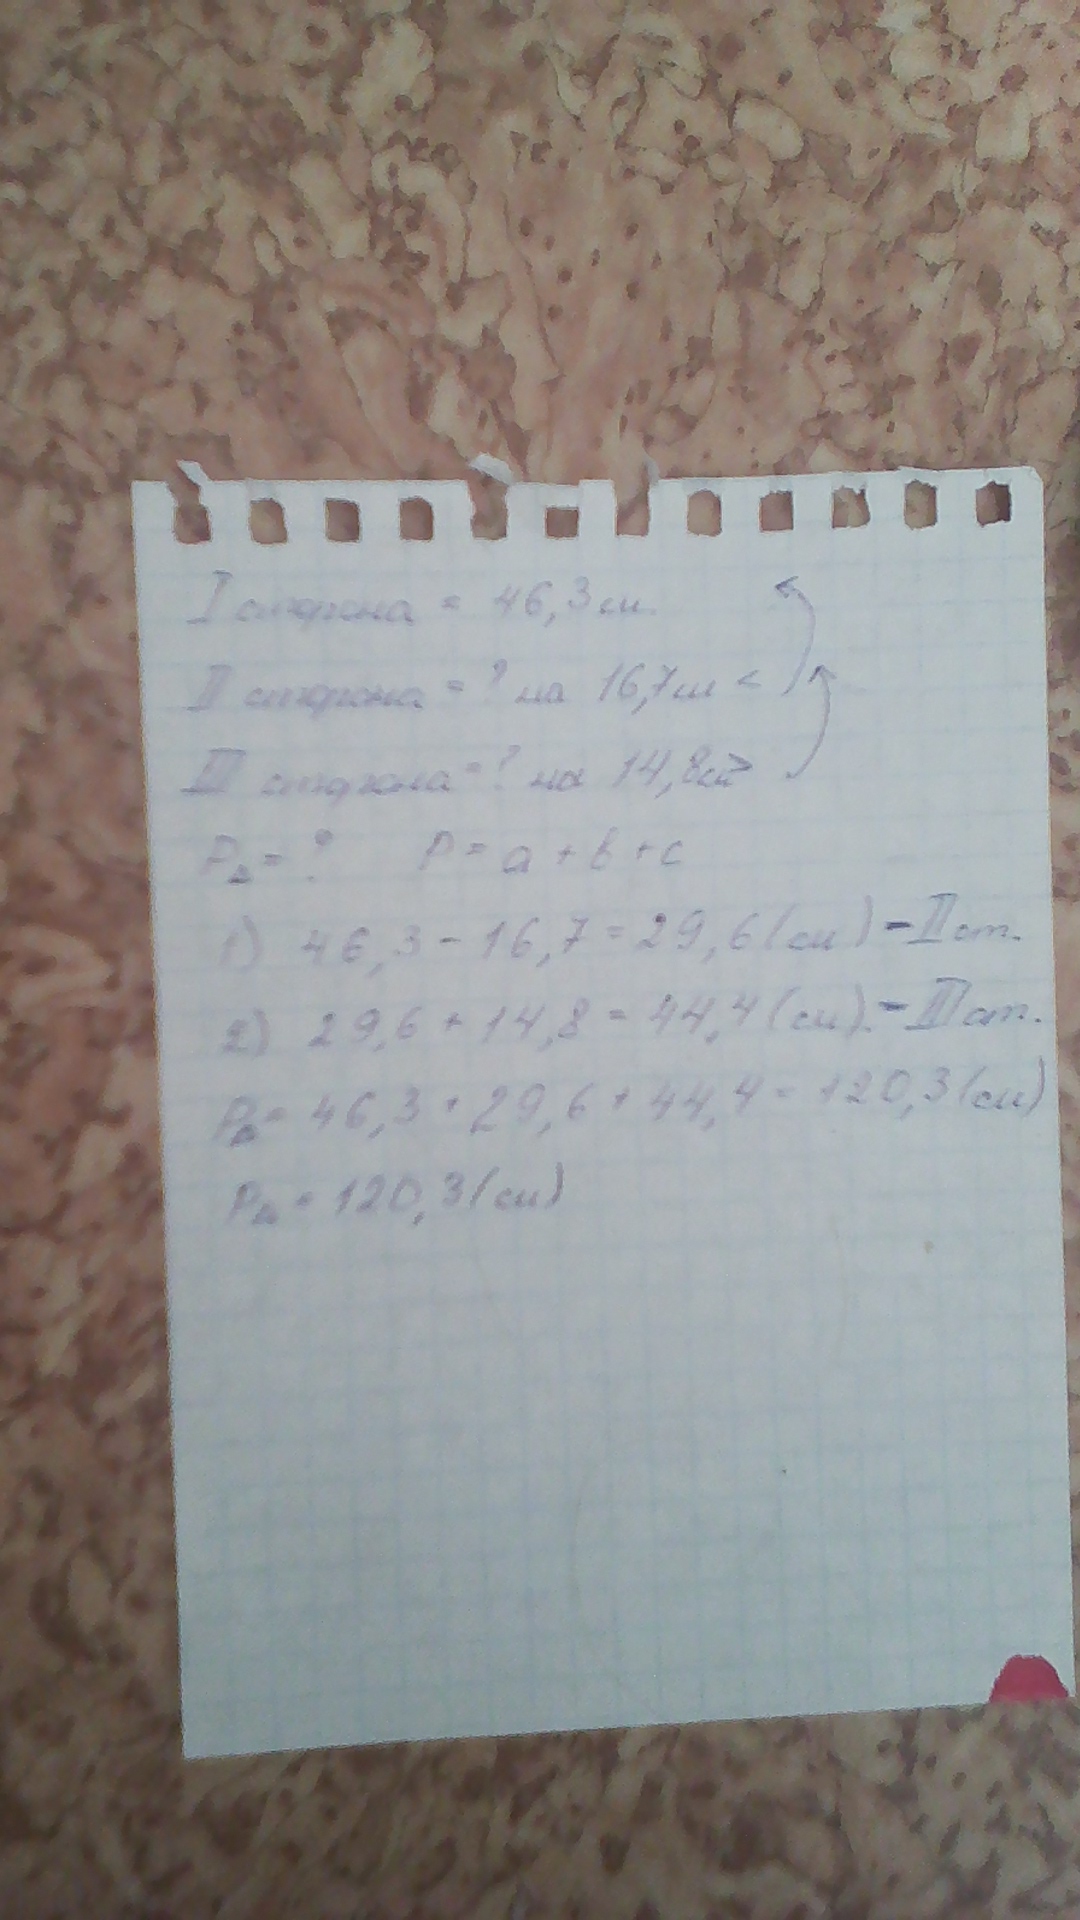 I сторона = 46,3см.
II сторона = ? на 16,7см <
III сторона = ? на 14,8см >
P△ = ? P = a + b + c
1) 46,3 - 16,7 = 29,6(см) - II ст.
2) 29,6 + 14,8 = 44,4(см). - III ст.
P△ = 46,3 + 29,6 + 44,4 = 120,3(см)
P△ = 120,3(см)